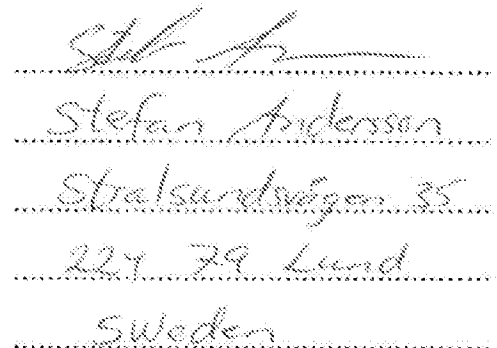 Stefan Andersson
Stralsundsvägen 35
224 79 Lund
Sweden